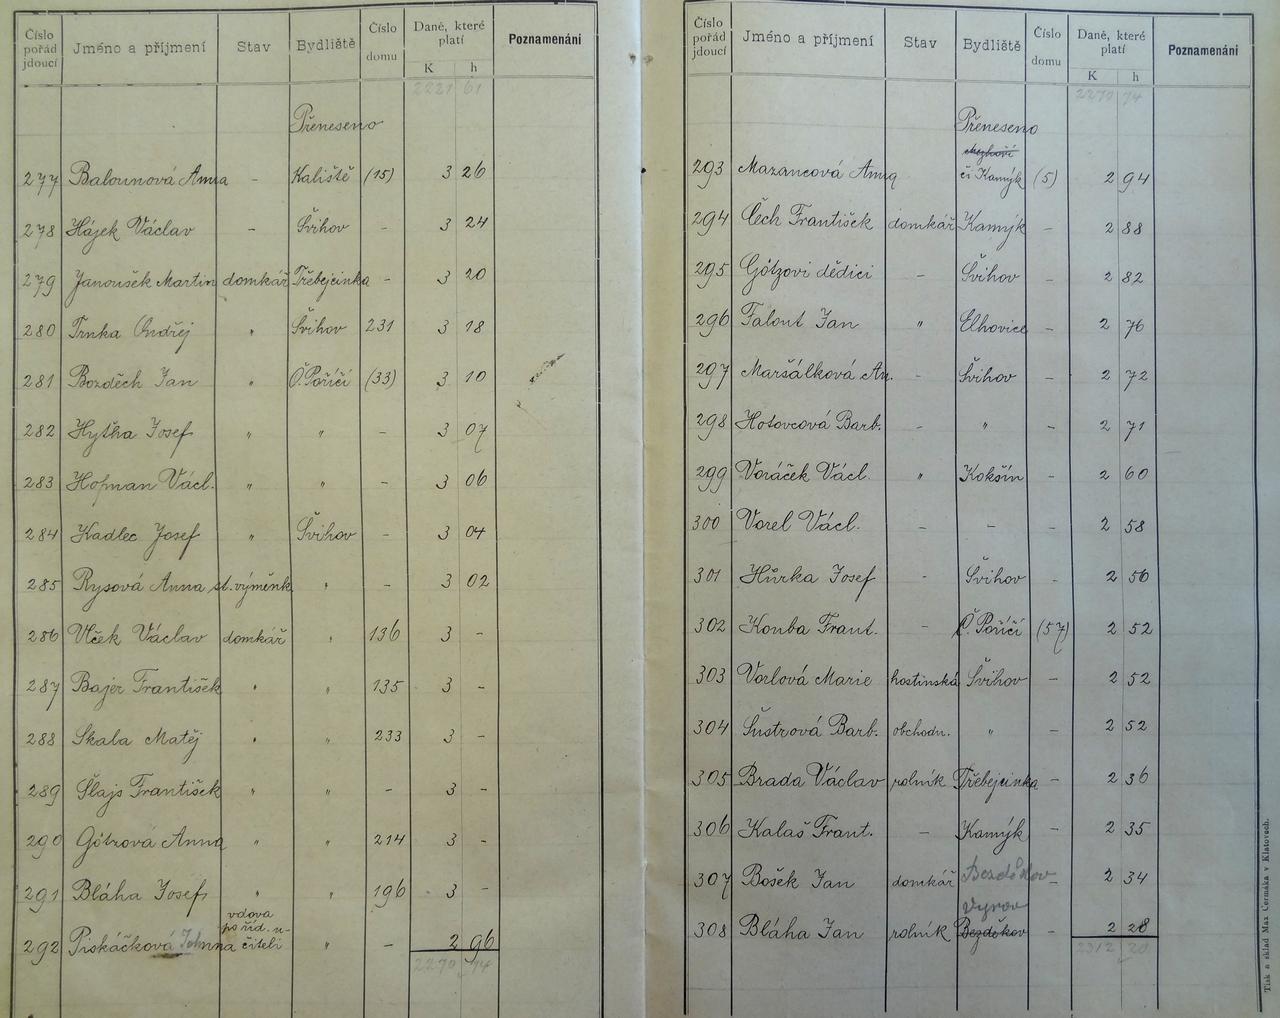 Číslo pořád jdoucí Jméno a příjmení Stav Bydliště Číslo domu Daně, které platí K h Poznamenání
2221 61
Přeneseno
277 Balounová Anna - Kaliště (15) 3 26
278 Hájek Václav - Švihov - 3 24
279 Janoušek Martin domkář Třebejcinka - 3 20
280 Trnka Ondřej " Švihov 231 3 18
281 Bozděch Jan " Č. Poříčí (33) 3 10
282 Hytka Josef " " - 3 07
283 Hofman Václ. " " - 3 06
284 Kadlec Josef " Švihov - 3 04
285 Rysová Anna st. výměnk. " - 3 02
286 Vlček Václav domkář " 136 3 -
287 Bajer František " " 135 3 -
288 Skala Matěj " " 233 3 -
289 Šlajs František " " - 3 -
290 Götzová Anna " " 214 3 -
291 Bláha Josef " " 196 3 -
vdova
po říd. u-
292 Piskáčková Johnna čiteli " - 2 96
2270 74
Číslo pořád jdoucí Jméno a příjmení Stav Bydliště Číslo domu Daně, které platí K h Poznamenání
2270 74
Přeneseno
293 Mazancová Anna či Kamýk (5) 2 94
294 Čech František domkář Kamýk - 2 88
295 Götzovi dědici - Švihov - 2 82
296 Falout Jan " Elhovice - 2 76
297 Maršálková An. - Švihov - 2 72
298 Hotovcová Barb. - " - 2 71
299 Voráček Václ. " Kokšín - 2 60
300 Vorel Václ. - - - 2 58
301 Hůrka Josef - Švihov - 2 56
302 Kouba Frant. - Č. Poříčí (57) 2 52
303 Vorlová Marie hostinská Švihov - 2 52
304 Šustrová Barb. obchodn. " - 2 52
305 Brada Václav rolník Třebejcinka - 2 36
306 Kalaš Frant. - Kamýk - 2 35
307 Bošek Jan domkář Bezděkov - 2 34
Vyrov
308 Bláha Jan rolník Bezděkov - 2 28
2312 20
Tisk a sklad Max Čermáka v Klatovech.